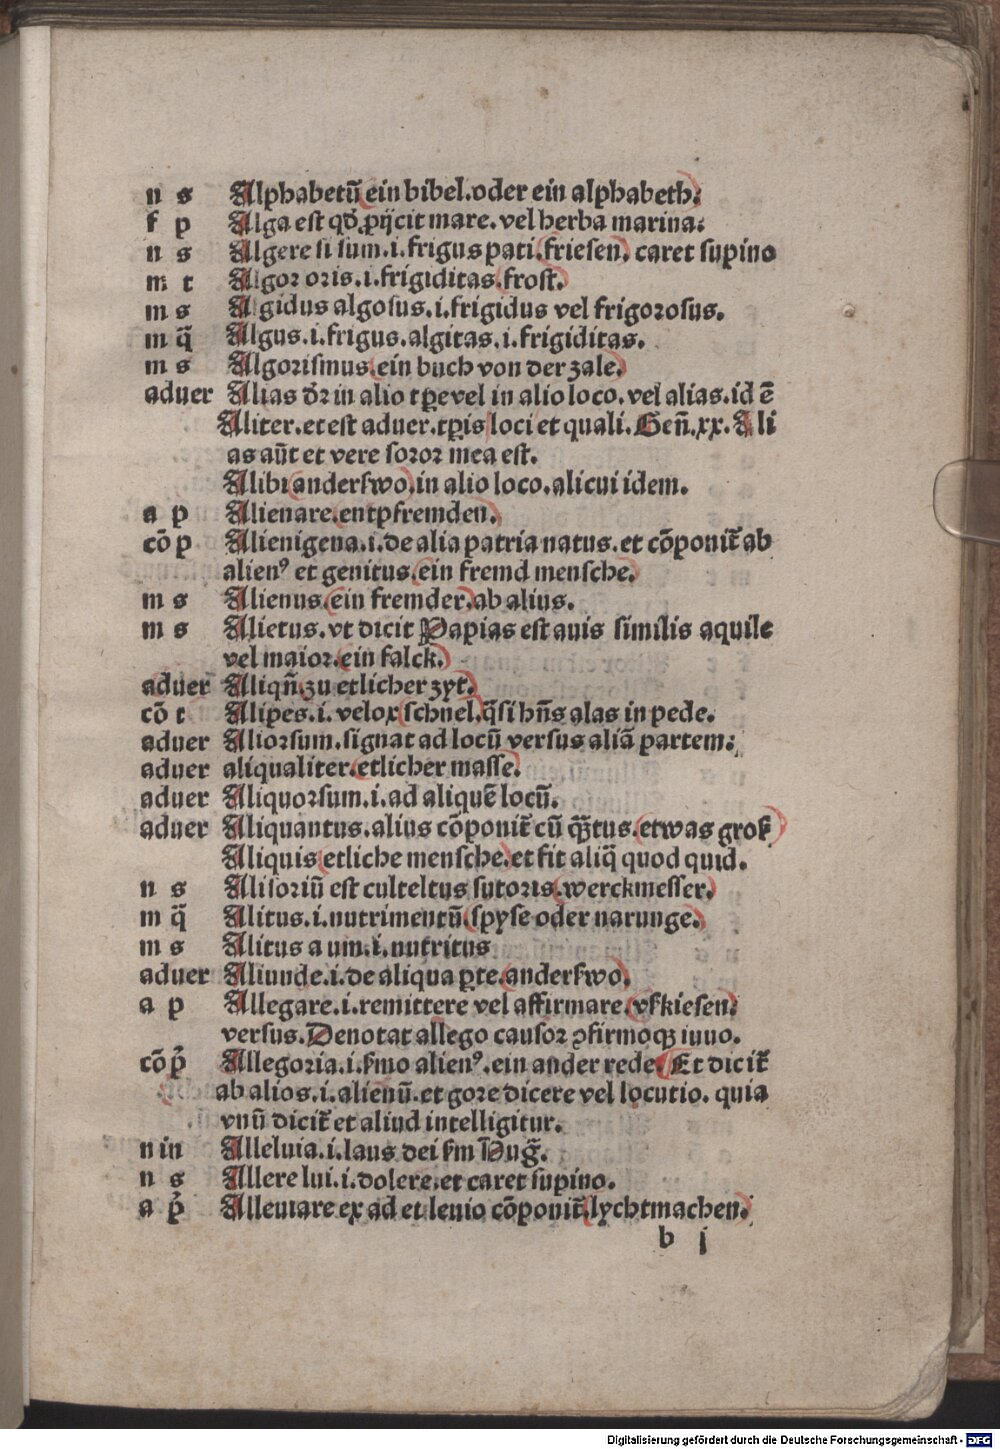 n s Alphabetū ein bibel.oder ein alphabeth.
f p Alga est qđ ꝓijcit mare.vel herba marina.
n s Algere si sum.i.frigus pati.friesen. caret supino
m t Algor oris.i.frigiditas.frost.
m s Algidus algosus.i.frigidus vel frigorosus.
m q̄ Algus.i.frigus.algitas.i.frigiditas.
m s Algorismus.ein buch von der zale.
aduer Alias dr̄ in alio tꝑe vel in alio loco.vel alias.id ē
Aliter.et est aduer.tꝑis loci et quali.Geñ.xx.Ali
as aūt et vere soror mea est.
Alibi anderswo.in alio loco.alicui idem.
a p Alienare.entpfremden.
cō p Alienigena.i.de alia patria natus.et cōponit̄ ab
alienꝰ et genitus.ein fremd mensche.
m s Alienus.ein fremder.ab alius.
m s Alietus.vt dicit Papias est auis similis aquile
vel maior.ein falck.
aduer Aliqñ zu etlicher zyt.
cō t Alipes.i.velox schnel.q̄si hñs alas in pede.
aduer Aliorsum.signat ad locū versus aliā partem.
aduer aliqualiter.etlicher masse.
aduer Aliquorsum.i.ad aliquē locū.
aduer Aliquantus.alius cōponit̄ cū q̄tus.etwas groß
Aliquis etliche mensche.et fit aliq̄ quod quid.
n s Alisoriū est culteltus sutoris.werckmesser.
m q̄ Alitus.i.nutrimentū.spyse oder narunge.
m s Alitus a um.i.nutritus
aduer Aliunde.i.de aliqua ꝑte.anderswo.
a p Allegare.i.remittere vel affirmare.vßkiesen.
versus.Denotat allego causor ꝯfirmoqꝫ iuuo.
cō p̄ Allegoria.i.ẜmo alienꝰ.ein ander rede.Et dicit̄
ab alios.i.alienū.et gore dicere vel locutio. quia
vnū dicit̄ et aliud intelligitur.
n in Alleluia.i.laus dei ẜm Huḡ.
n s Allere lui.i.dolere.et caret supino.
a p̄ Alleuiare ex ad et leuio cōponit̄.lychtmachen.
b j
Digitalisierung gefördert durch die Deutsche Forschungsgemeinschaft - DFG